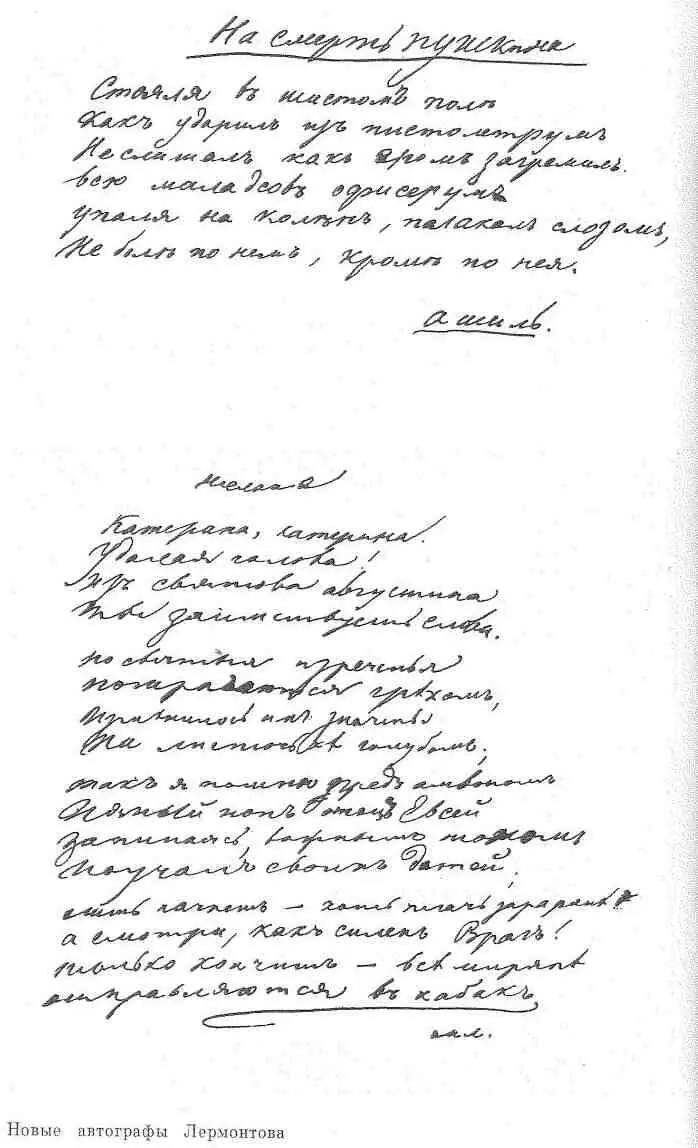 На смерть Пушкина
Стояля въ шистомъ поль
Какъ ударилъ изъ пистолетрумъ
Не слишалъ какъ громъ загремилъ
всю маладсовъ офисерумъ
упаля на колънъ, палакалъ слозомъ,
Неболь по немъ, кромъ по нея.
ашиль.
Катерина, Катерина.
Удалая голова!
Изъ святова августина
Ты заимствуешь слова.
но святыя изреченья
Помрачаются грѣхомъ,
Измѣнилось ихъ значенье
На листочкѣ голубомъ,
такъ я помню предъ амвономъ
Пьяный попъ отецъ Евсей
Запинаясь, важнымъ тономъ
Поучалъ своихъ дѣтей,
лишь начнетъ – хоть плачь заранѣ
а смотри, какъ силенъ Врагъ!
только кончитъ – всѣ миряне
отправляются въ кабакъ
Новые автографы Лермонтова